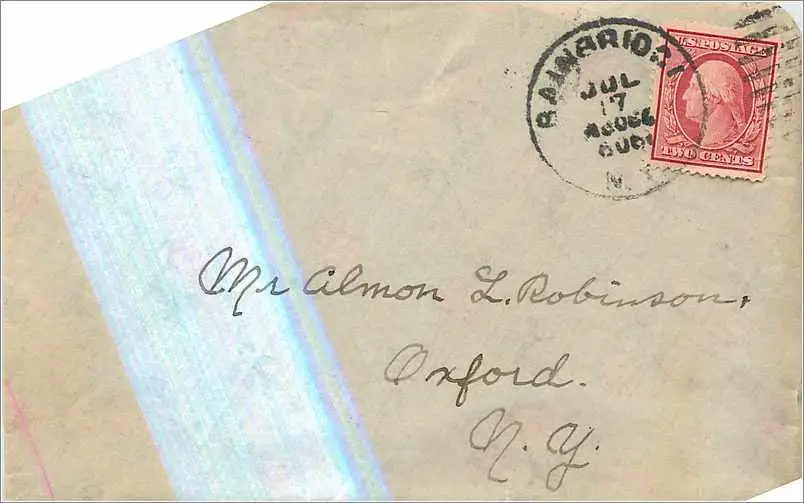 BAINBRIDG
JUL
17
N.Y.
U.S. POSTAGE
TWO CENTS
Mr Almon L. Robinson,
Oxford.
N. Y.